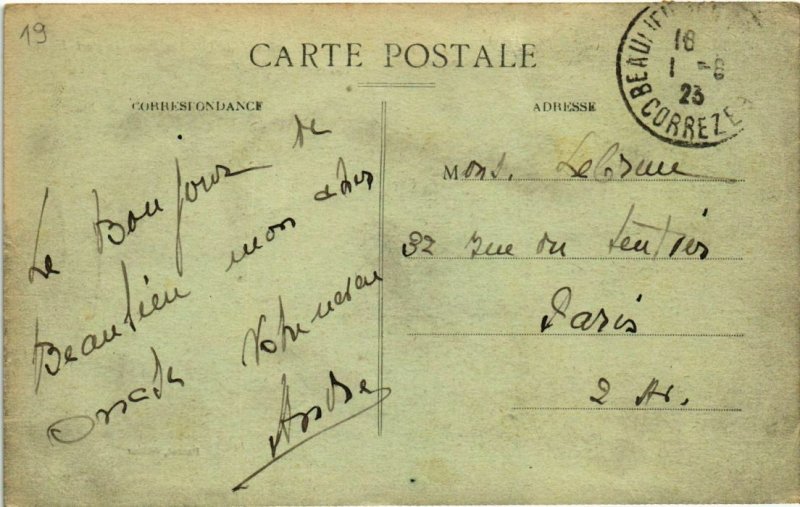 19
CARTE POSTALE
BEAULIEU
18
1 -8
23
CORREZE
CORRESPONDANCE
ADRESSE
Le Bonjour de
Beaulieu mon cher
Votre neveu
André
Mons. Lebrun
32 rue du Sentier
Paris
2 Ar.